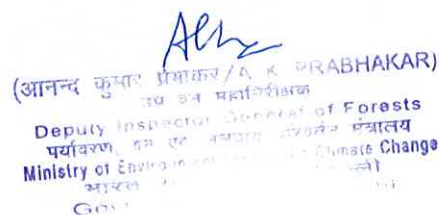 (आनन्द कुमार प्रभाकर/A K PRABHAKAR)
उप वन महानिरीक्षक
Deputy Inspector General of Forests
पर्यावरण, वन एवं जलवायु परिवर्तन मंत्रालय
Ministry of Environment Climate Change
भारत